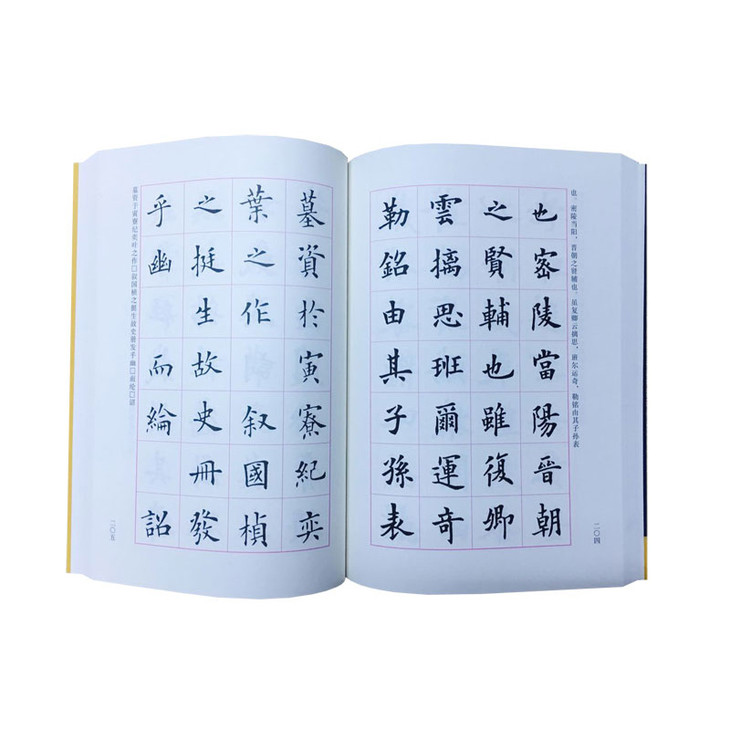 也密陵當陽晉朝
之賢輔也雖復卿
雲摛思班爾運奇
勒銘由其子孫表
也，密陵当阳，晋朝之贤辅也，虽复卿云摛思，班尔运奇，勒铭由其子孙表
二〇四
墓資於寅寮紀奕
葉之作 叙國楨
之挺生故史冊發
乎幽 而綸 詔
墓资于寅寮纪奕叶之作□叙国桢之挺生故史册发乎幽□而纶□诏
二〇五